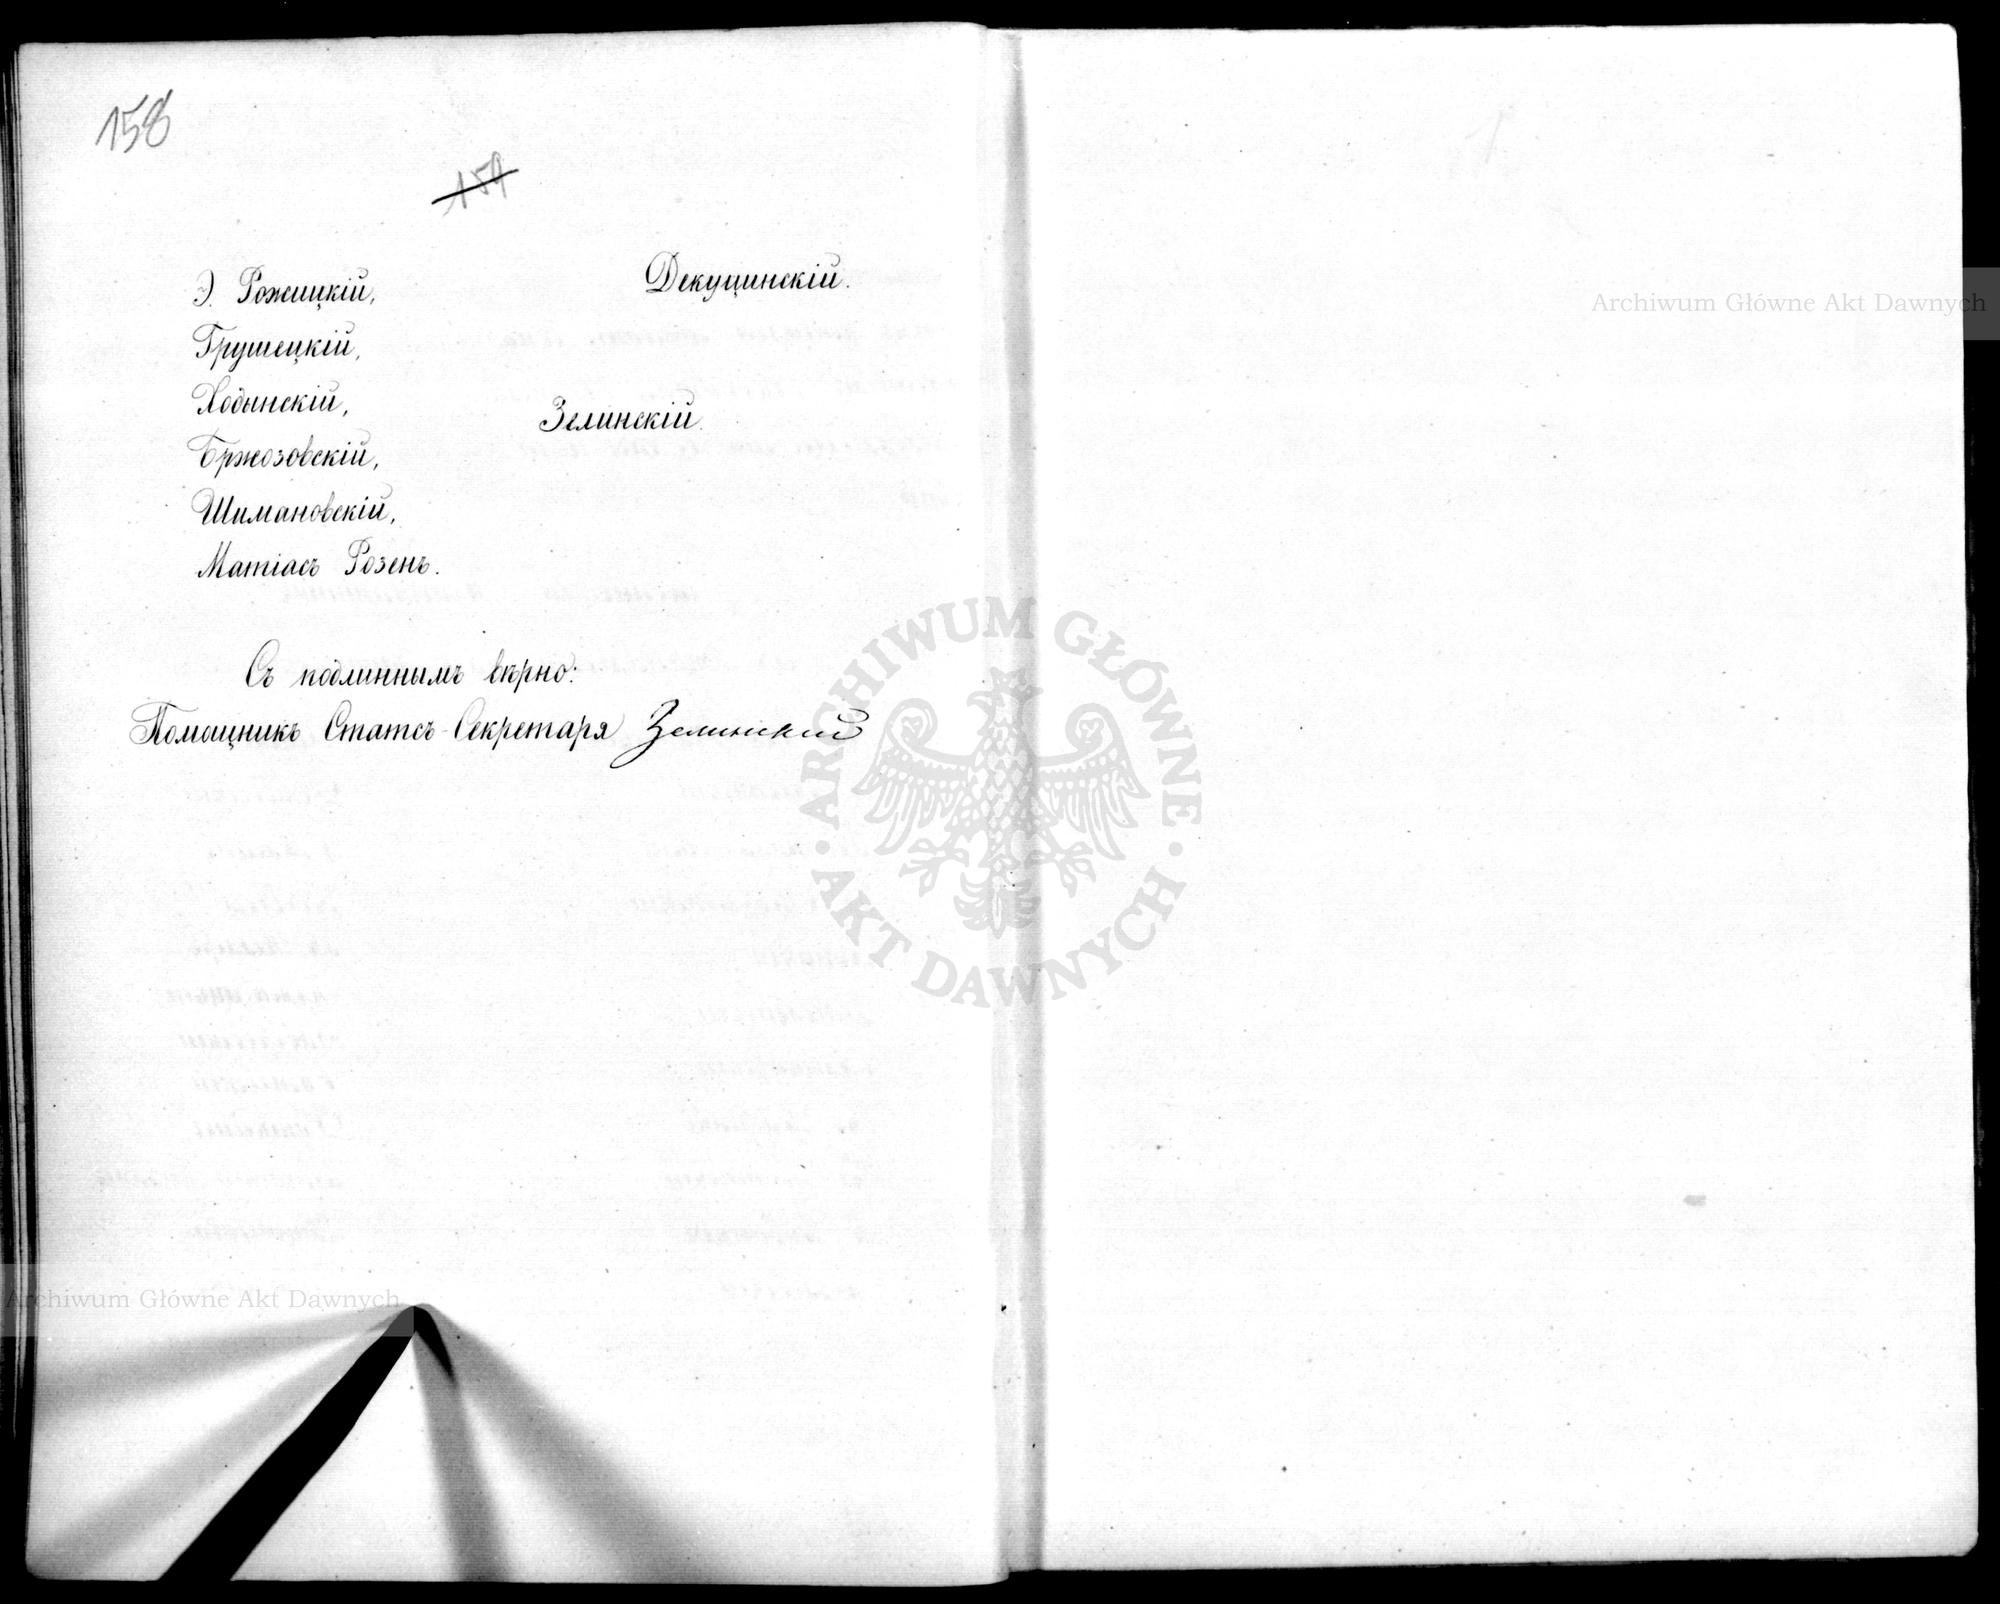 158
159
Э. Рожицкій,
Грушецкій,
Ходынскій,
Бржозовскій,
Шимановскій,
Матіасъ Розенъ.
Декуцинскій.
Зелинскій.
Съ подлиннымъ вѣрно:
Помощникъ Статсъ-Секретаря Зелинскій
Archiwum Główne Akt Dawnych
ARCHIWUM GŁÓWNE
AKT DAWNYCH
Archiwum Główne Akt Dawnych